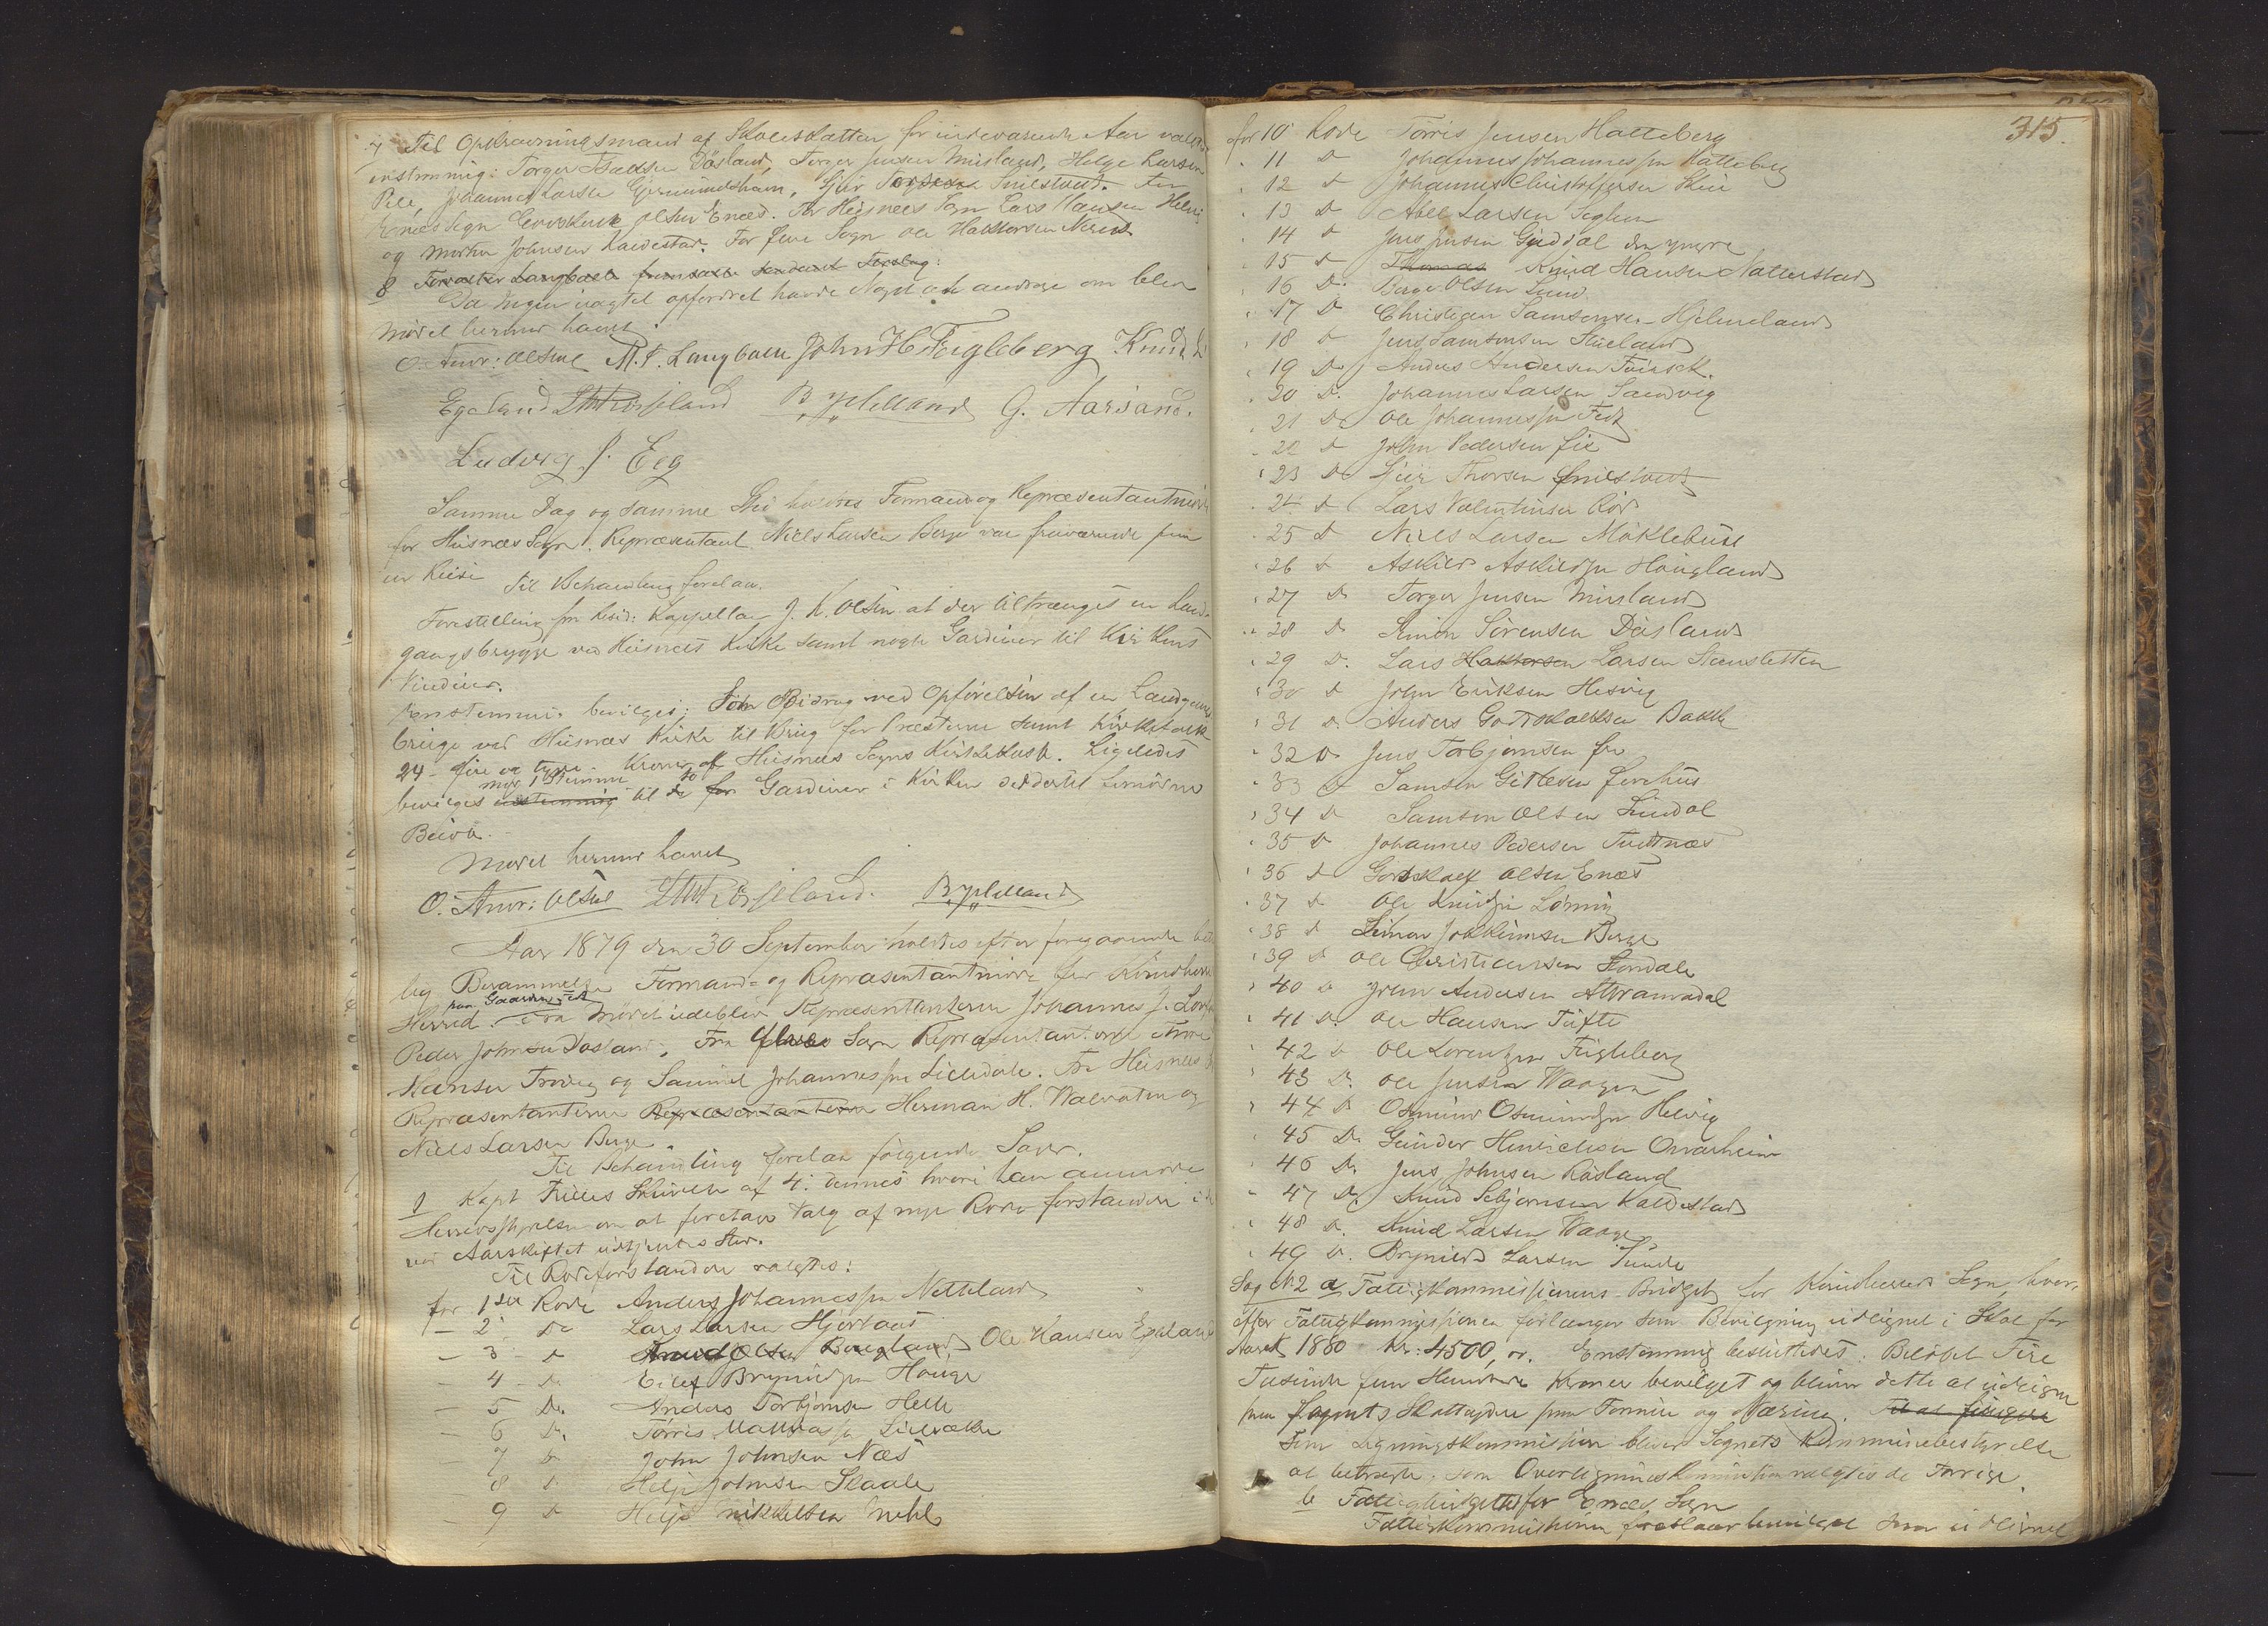 7 Til Opkrævningsmænd af Skoleskatten for indeværende Aar valgtes
enstemmig: Torger Isaksen Døsland, Torger Jensen Musland, Helge Larsen
Pile, Johannes Larsen Gjermundshavn, Gjeir Torsen Snilstveit. For
Enæs Sogn Godskalk Olsen Enæs. For Husnæs Sogn Lars Hansen Helvig
og Morten Johnsen Kaldestad. For Sogn Ole Haktorsen Nerhus
8 Forvalter Langballe fremsatte Forslag:
Da Ingen iagttil opfordret havde Noget at andrage om blev
Mødet hermed hævet
O. Amv: Olsen M. P. Langballe John H. Feigleberg Knud L.
Egeland Røssland B. Helland G. Aarsand.
Ludvig P. Eeg
Samme Dag og samme Sted holdtes Formand og Repræsentantmøde
for Husnæs Sogn. Repræsentant Niels Larsen Berge var fraværende paa
en Reise
Til Behandling forelaa.
Forestilling fra Resid: Kappellan J. K. Olsen at der tiltrænges en Land-
gangsbrygge ved Husnæs Kirke samt nogle Gardiner til Kirkens
Vinduer.
Enstemmi. bevilges: Som Bidrag ved Opførelsen af en Landgangs
brygge ved Husnæs Kirke til Brug for Præsterne samt
24 - fire og tyve - Kroner af Husnæs Sogns Kirkekasse. Ligeledes
mod 1 Stemme to
bevilges enstemmig til de for Gardiner i Kirken dertil fornødne
Beløb.
Mødet hermed hævet
O. Amv: Olsen Røssland. B. Helland
Aar 1879 den 30 September holdtes efter foregaaende
lig Berammelse Formand- og Repræsentantmøde for Kvindherred
paa Gaarden Fet
Herred. Fra Mødet udeblev Repræsentanterne Johannes J.
Peder Johnsen Døsland. Fra Sogn Repræsentanterne
Hansen Trovaag og Samuel Johannessen Lilledale. Fra Husnæs
Repræsentanterne Repræsentanterne Herman H. Valvatne og
Niels Larsen Berge.
Til Behandling forelaa følgende Sager.
1 Kapt Skrivelse af 4. dennes hvori han anmoder
Herredsstyrelsen om at foretage Valg af nye Rodeforstandere i
ved Aarskiftet udtjentes Sted.
Til Rodeforstandere valgtes:
for 1ste Rode Anders Johannessen Netteland
— 2 Do Lars Larsen Hjortaas
— 3 - D Knud Olsen Ole Hansen Egeland
— 4 - D Eilef Brynildsen Hauge
— 5 D. Anders Torbjørnsen Helle
— 6 D. Tørris Mathiassen
— 7 D John Johnsen Næs
— 8 D Helje Johnsen Skaale
— 9 D Helje Mikkelsen Mehl
315.
for 10 Rode Tørris Jensen Hatteberg
" 11 D Johannes Johannessen Hatteberg
" 12 D Johannes Christoffersen Skeie
" 13 D Abel Larsen Seglem
" 14 D Jens Jensen Guddal den yngre
" 15 D Thomas Knud Hansen Natterstad
" 16 D. Børge Olsen Lund
" 17 D Christian Samsonsen Hjelmeland
" 18 D Jens Samsonsen
" 19 D. Anders Andersen
" 20 D. Johannes Larsen Sandvig
" 21 D. Ole Johannessen Fet
" 22 D John Pedersen Sæ
" 23 D. Gjeir Thorsen Snilstveit
" 24 D Lars Valentinsen Rød
" 25 D Niels Larsen Møklebust
" 26 D Askild Askildsen Haugland
" 27 D. Torger Jensen Musland
" 28 D. Simon Sørensen Døsland
" 29 D. Lars Haktorsen Larsen Steinsletten
" 30 D John Eriksen Hesvig
" 31 D. Anders Godtskalksen Bakke
" 32 D Jens Torbjørnsen
" 33 D Samson Gitlesen
" 34 D Samson Olsen Sundal
" 35 D Johannes Pedersen
" 36 D Godskalk Olsen Enæs
" 37 D Ole Knudsen Løning
" 38 D Simon Jokkumsen Berge
" 39 D Ole Christensen
" 40 D John Andersen
" 41 D. Ole Hansen Tufte
" 42 D Ole Lorentzen Feigleberg
" 43 D. Ole Jensen Waagen
" 44 D Osmund Osmundsen Helvig
" 45 D. Gunder Henrichsen Omvarheim
" 46 D. Jens Johnsen Røsland
" 47 D. Knud Sebjørnsen Kaldestad
" 48 D. Knud Larsen Waage
" 49 D. Brynild Larsen Sunde
Sag No 2 a Fattigkommissionens Budget for Kvindherreds Sogn, hvor-
efter Fattigkommissionen forlanger som Bevilgning udlignet i Skat for
Aaret 1880 Kr: 4500,00. Enstemmig besluttedes: Beløbet Fire
Tusinde fem Hundrede Kroner bevilget og bliver dette at udligne
paa Sognets Skattydere paa Formue og Næring.
Som Ligningskommission bliver Sognets Kommunebestyrelse
at betragte. Som Overligningskommission valgtes de Forrige.
b Fattigbudgettet for Enæs Sogn
Fattigkommissionen foreslaar bevilget som udlignet